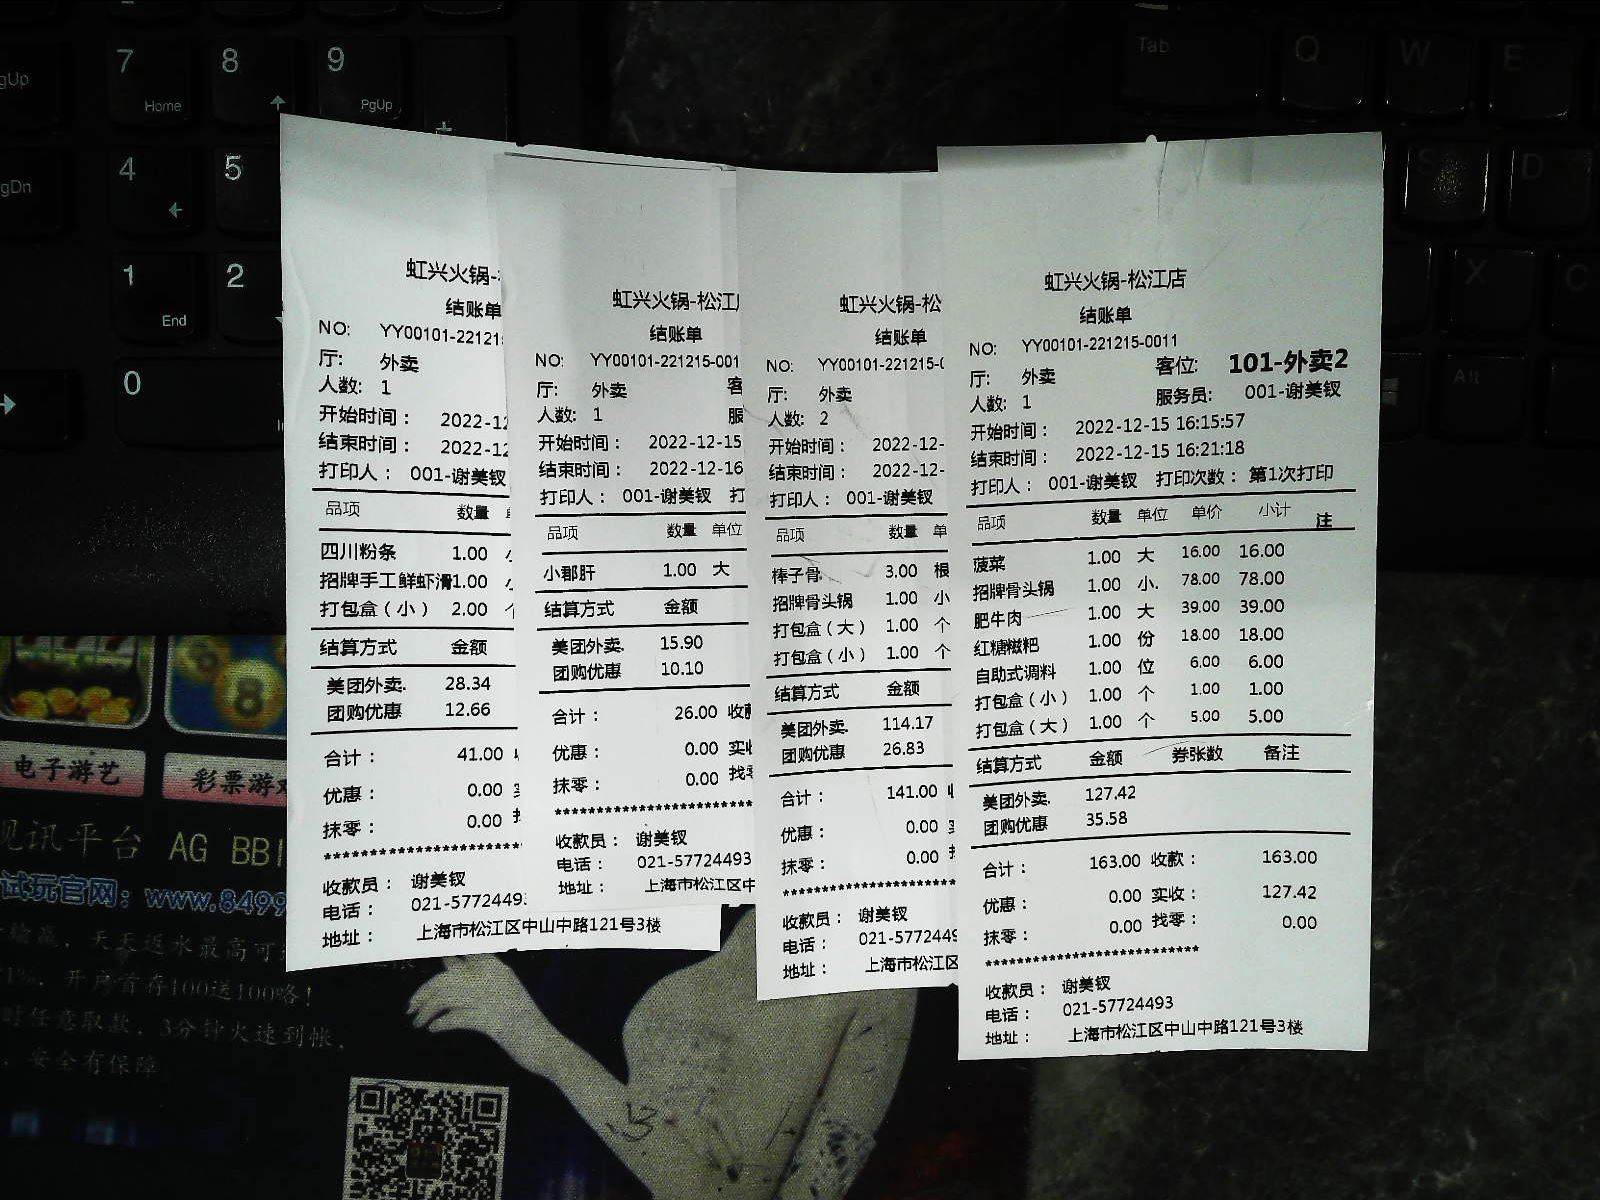 7
8
9
Home
PgUp
gUp
4
5
gDn
1
2
End
0
Tab
Q
W
E
S
D
X
C
Alt
虹兴火锅-
结账单
NO: YY00101-221215
厅: 外卖
人数: 1
开始时间： 2022-12
结束时间： 2022-12
打印人： 001-谢美钗
品项 数量
四川粉条 1.00
招牌手工鲜虾滑1.00
打包盒（小） 2.00
结算方式 金额
美团外卖. 28.34
团购优惠 12.66
合计： 41.00
优惠： 0.00
抹零： 0.00
收款员： 谢美钗
电话： 021-57724493
地址： 上海市松江区中山中路121号3楼
虹兴火锅-松江
结账单
NO: YY00101-221215-001
厅: 外卖 客
人数: 1 服
开始时间： 2022-12-15
结束时间： 2022-12-16
打印人： 001-谢美钗 打
品项 数量 单位
小郡肝 1.00 大
结算方式 金额
美团外卖. 15.90
团购优惠 10.10
合计： 26.00 收
优惠： 0.00 实收
抹零： 0.00 找零
***********************
收款员： 谢美钗
电话： 021-57724493
地址： 上海市松江区中
虹兴火锅-松
结账单
NO: YY00101-221215-
厅: 外卖
人数: 2
开始时间： 2022-12-
结束时间： 2022-12-
打印人： 001-谢美钗
品项 数量 单
棒子骨. 3.00 根
招牌骨头锅 1.00 小
打包盒（大） 1.00 个
打包盒（小） 1.00 个
结算方式 金额
美团外卖. 114.17
团购优惠 26.83
合计： 141.00
优惠： 0.00
抹零： 0.00
收款员： 谢美钗
电话： 021-5772449
地址： 上海市松江区
虹兴火锅-松江店
结账单
NO: YY00101-221215-0011
厅: 外卖 客位: 101-外卖2
人数: 1 服务员: 001-谢美钗
开始时间： 2022-12-15 16:15:57
结束时间： 2022-12-15 16:21:18
打印人： 001-谢美钗 打印次数： 第1次打印
品项 数量 单位 单价 小计 注
菠菜 1.00 大 16.00 16.00
招牌骨头锅 1.00 小. 78.00 78.00
肥牛肉 1.00 大 39.00 39.00
红糖糍粑 1.00 份 18.00 18.00
自助式调料 1.00 位 6.00 6.00
打包盒（小） 1.00 个 1.00 1.00
打包盒（大） 1.00 个 5.00 5.00
结算方式 金额 券张数 备注
美团外卖. 127.42
团购优惠 35.58
合计： 163.00 收款： 163.00
优惠： 0.00 实收： 127.42
抹零： 0.00 找零： 0.00
收款员： 谢美钗
电话： 021-57724493
地址： 上海市松江区中山中路121号3楼
8
电子游艺
彩票游戏
视讯平台 AG BBI
试玩官网: www.8499
天天返水最高可
1%, 开户首存100送100咯!
时任意取款, 3分钟火速到帐,
安全有保障